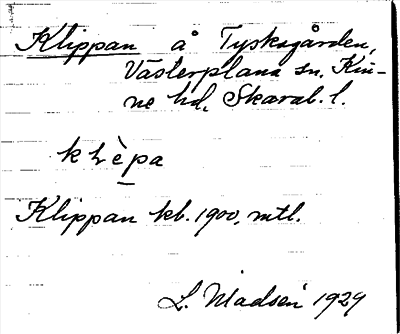 Klippan å Tyskagården,
Västerplana sn. Kin-
ne hd, Skarab. l.
klèpa
Klippan kb. 1900, mtl.
L. Madsén 1929